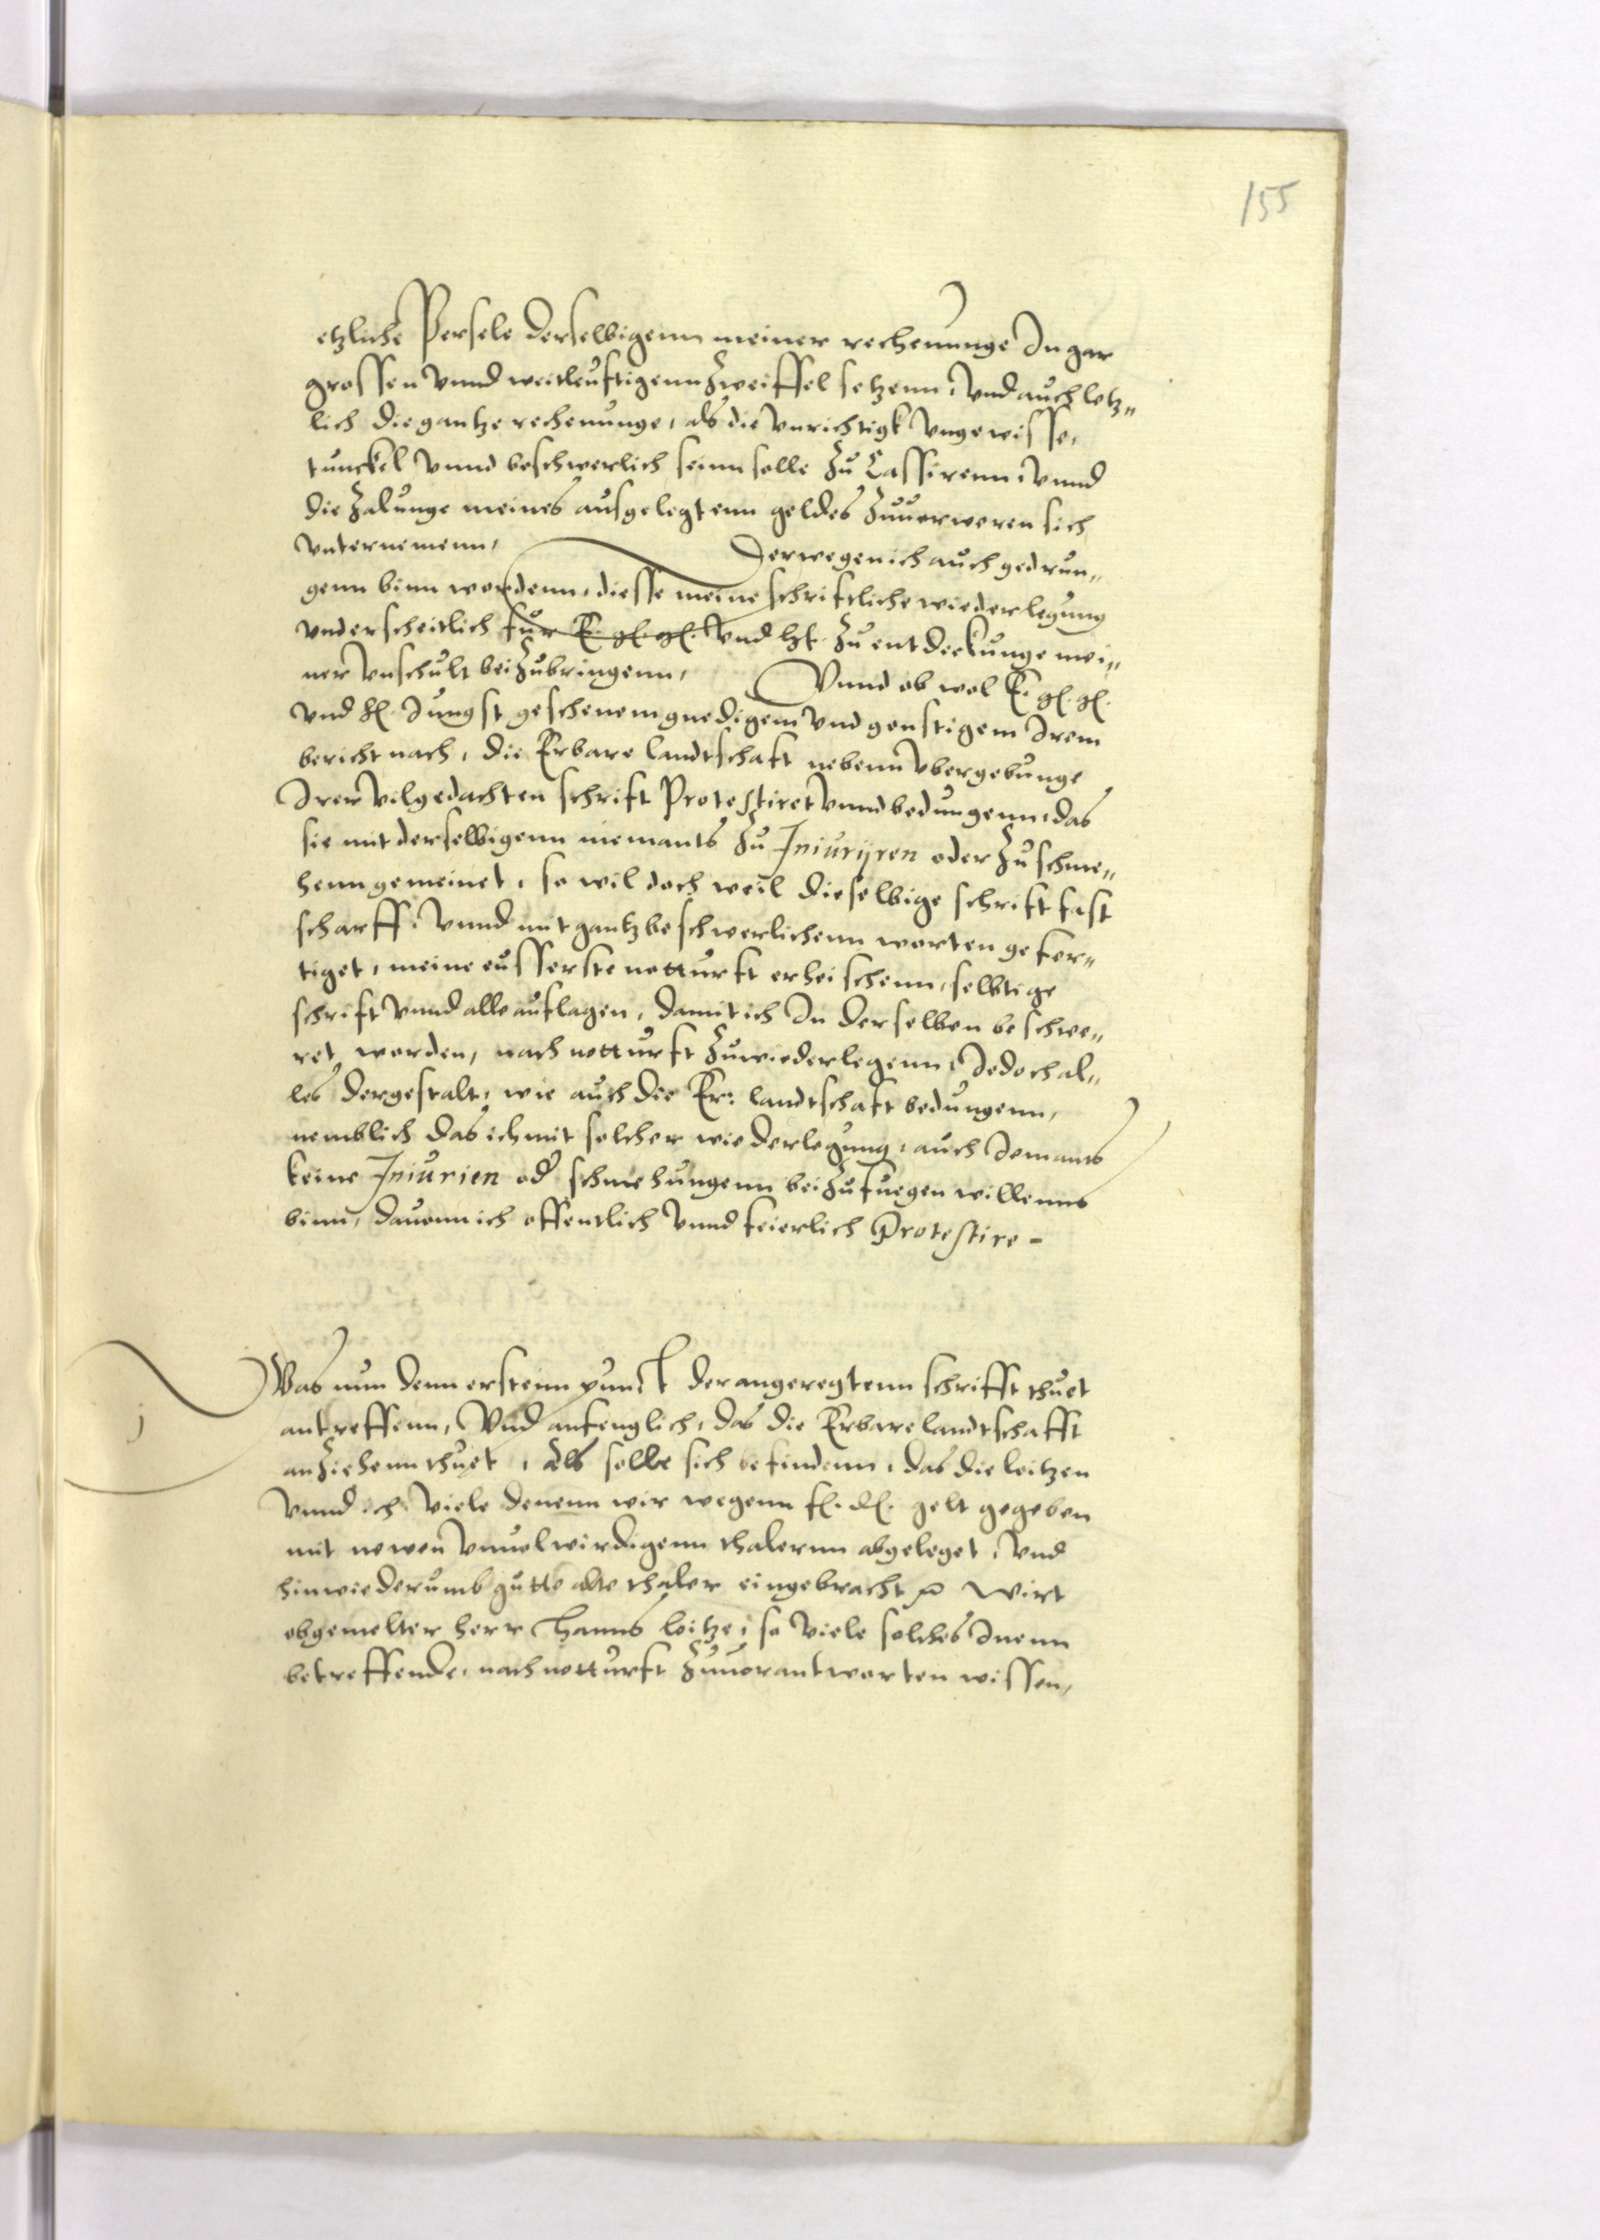 155
etzliche Persele derselbigenn meiner rechenunge In gar
grossen vnnd weitleuftigenn Zweiffel setzenn, vnd auch letz„
lich die gantze rechenunge, als die vnrichtigk vngewisse,
tunckel vnnd beschwerlich seinn solle Zu Cassirenn, vnnd
die Zalunge meines ausgelegtenn geldes Zuuerweren sich
vnternemenn, Derwegen ich auch gedrun„
genn binn wordenn, diesse meine schriftliche wiederlegung
vnderscheitlich fur E. gl. gl. vnd hl. Zu entdeckunge mei„
ner vnschult beiZubringenn, Vnnd ob wol E. gl. gl.
vnd hl. Jungst geschenem gnedigem vnd gonstigem Irem
bericht nach, die Erbare landtschaft nebenn vbergebunge
Irer vilgedachten schrift Protestiret vnnd bedungenn, das
sie mit derselbigenn niemants Zu Iniurijren oder Zu schme„
henn gemeinet, so wil doch weil dieselbige schrift fast
scharff, vnnd mit gantz beschwerlichenn worten gefer„
tiget, meine eusserste notturft erheischenn, selbtige
schrift vnnd alle auflagen, damit ich In derselben beschwe„
ret worden, nach notturft Zuwiederlegenn, Jedoch al„
les dergestalt, wie auch die Er: landtschaft bedungenn,
nemblich das ich mit solcher wiederlegung, auch Jemants
keine Iniurien oder schmehungenn beiZufuegen willenns
binn, dauonn ich offentlich vnnd feierlich Protestire -
j
Was nun denn erstenn punct der angeregtenn schrifft thuet
antreffenn, Vnd anfenglich, das die Erbare landtschafft
anZiehenn thuet, Als solle sich befindenn, das die loitzen
vnnd ich viele denenn wir wegenn f. d. gelt gegeben
mit newen vnuolwirdigenn thalernn abgeleget, vnd
hinwiederumb gutte alte thaler eingebracht wirt
obgemelter herr Hanns loitze, so viele solches Inenn
betreffende, nach notturft Zuuorantworten wissen,